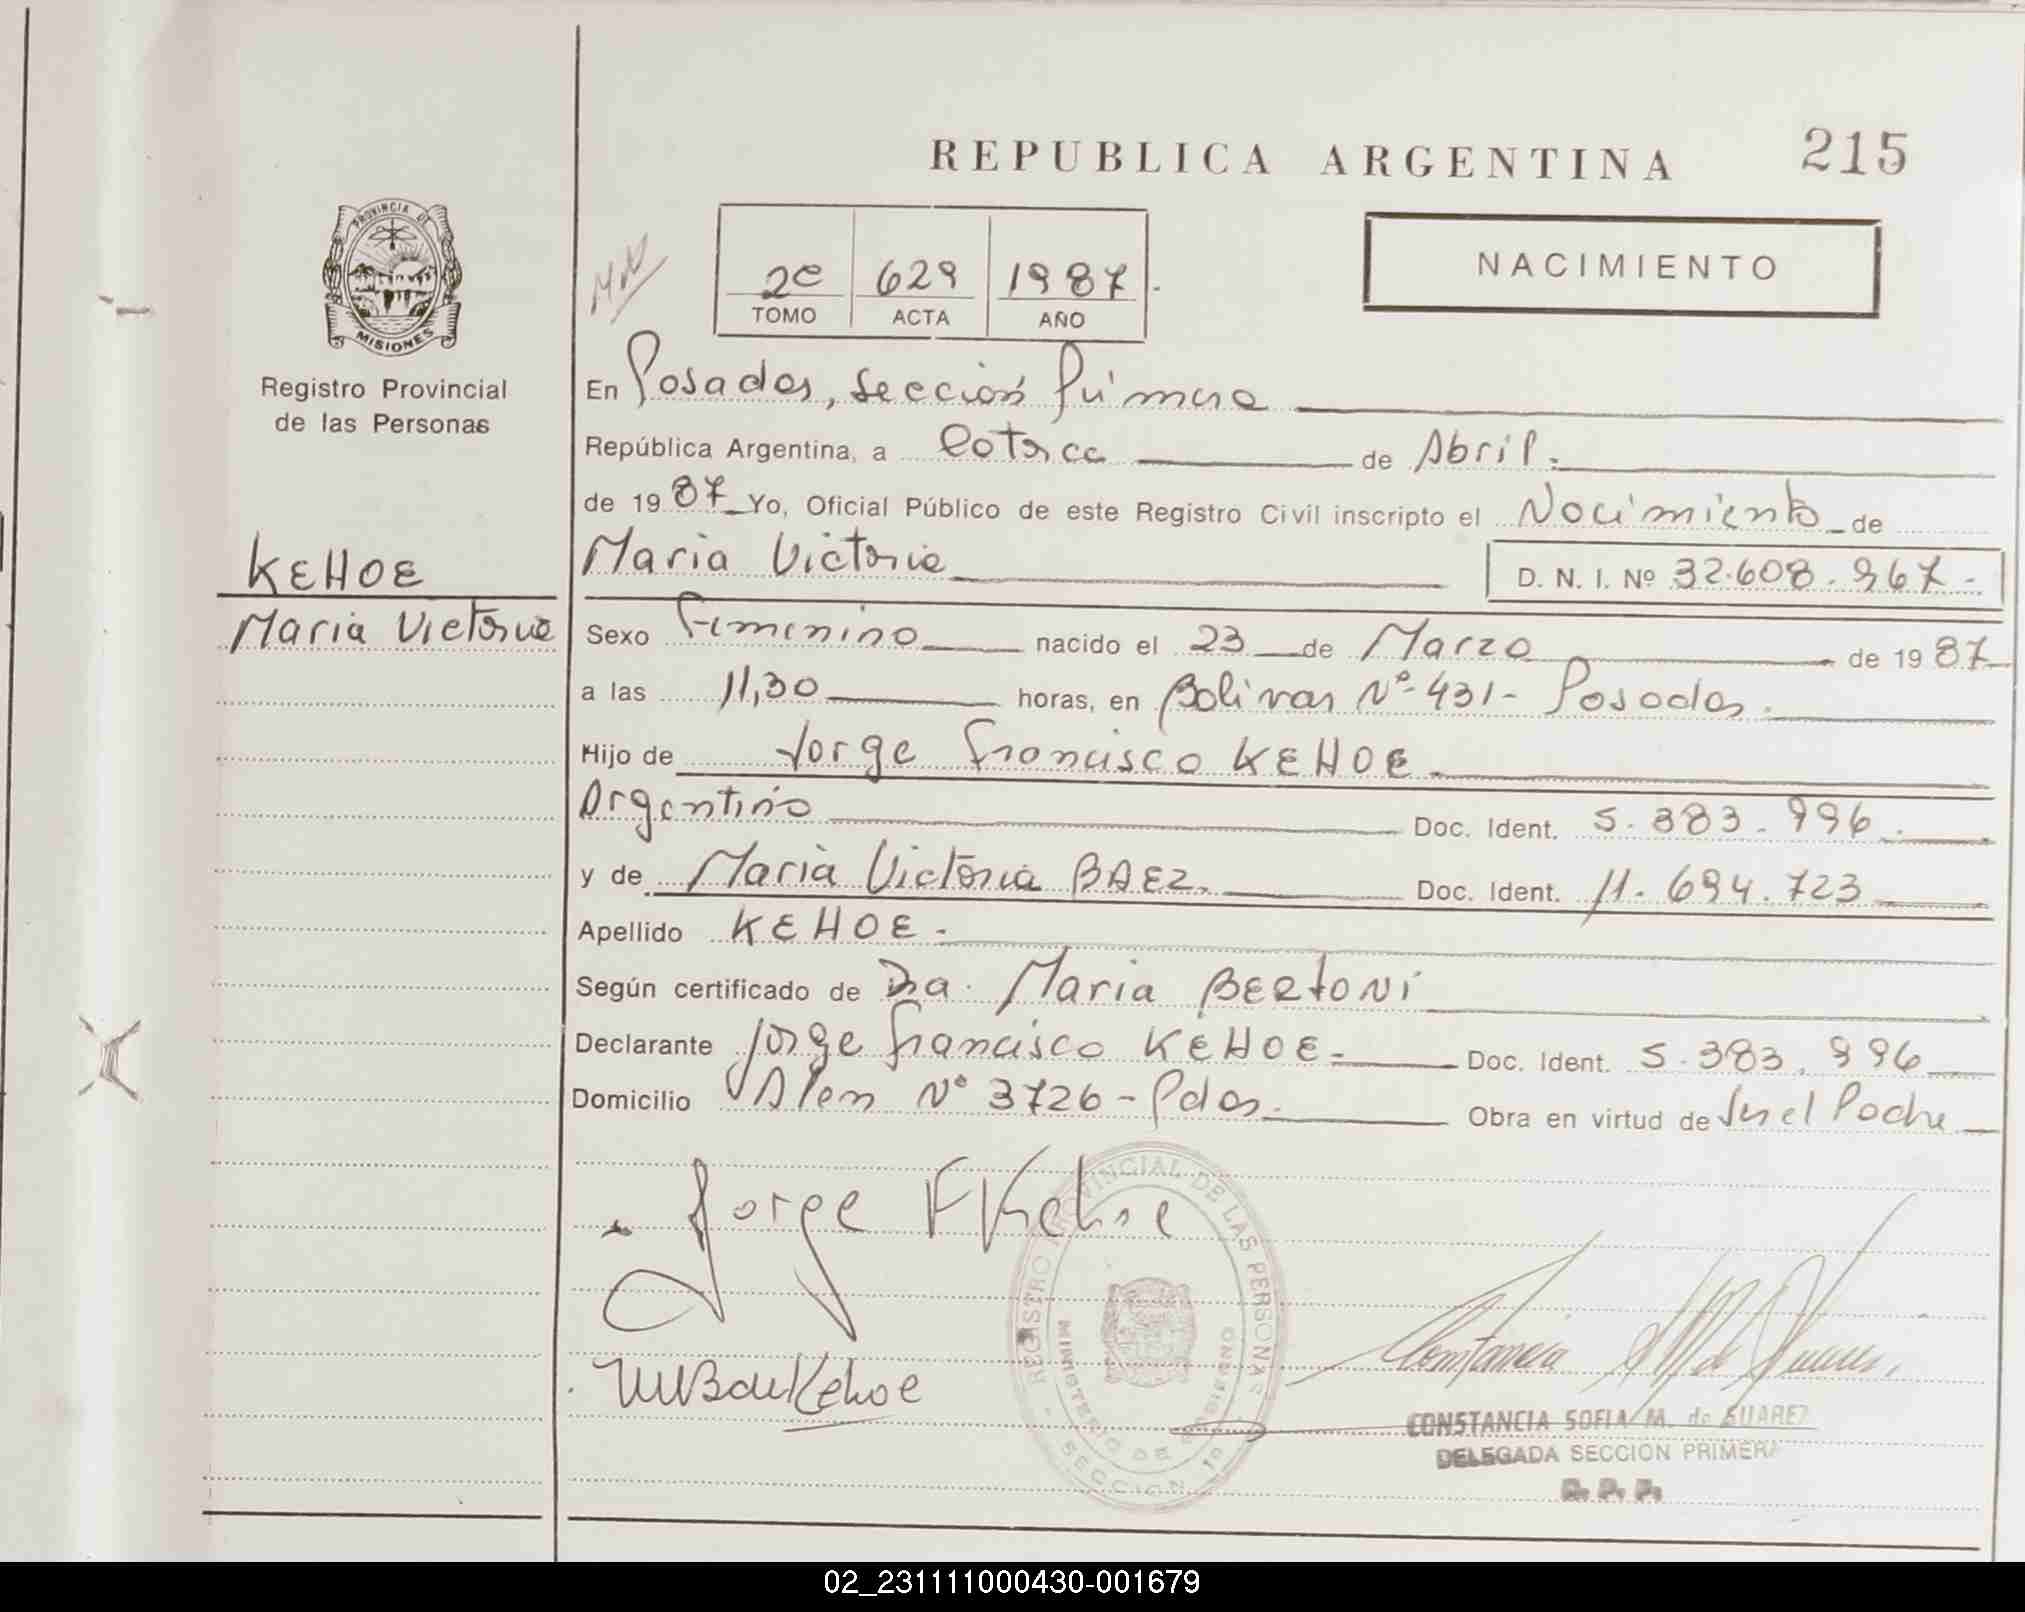 REPUBLICA ARGENTINA 215
PROVINCIA DE
MISIONES
Registro Provincial
de las Personas
2e 629 1987.
TOMO ACTA AÑO
NACIMIENTO
En Posadas, Sección Primera
República Argentina, a Catorce de Abril.
de 1987 Yo, Oficial Público de este Registro Civil inscripto el Nacimiento de
KEHOE
Maria Victoria
Maria Victoria D. N. I. Nº 32.608.967.-
Sexo Femenino nacido el 23 de Marzo de 1987
a las 11,30 horas, en Bolivar Nº 431- Posadas.
Hijo de Jorge Francisco KEHOE
Argentino Doc. Ident. 5.383.996.
y de Maria Victoria BAEZ. Doc. Ident. 11.694.723
Apellido KEHOE.
Según certificado de Dra. Maria BERTONI
Declarante Jorge Francisco KEHOE. Doc. Ident. 5.383.996
Domicilio Alem Nº 3726 - Pdas. Obra en virtud de Ser el Padre
Jorge F Kehoe
REGISTRO PROVINCIAL DE LAS PERSONAS
MINISTERIO DE GOBIERNO
SECCION 1ª
CONSTANCIA SOFIA M. de SUAREZ
DELEGADA SECCION PRIMERA
R. P. P.
02_231111000430-001679